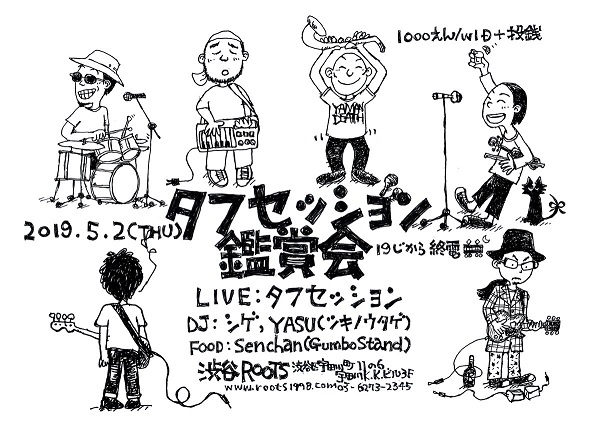 1000えん/w1D+投銭
YAMAN
DEATH
2019.5.2(THU)
タフセッション
鑑賞会
19じから終電
LIVE:タフセッション
DJ:シゲ,YASU(ツキノウタゲ)
FOOD:Senchan(GumboStand)
渋谷ROOTS
渋谷区宇田川町11の6
宇田川K.K.ビル3F
www.roots1998.com 03-6273-2345